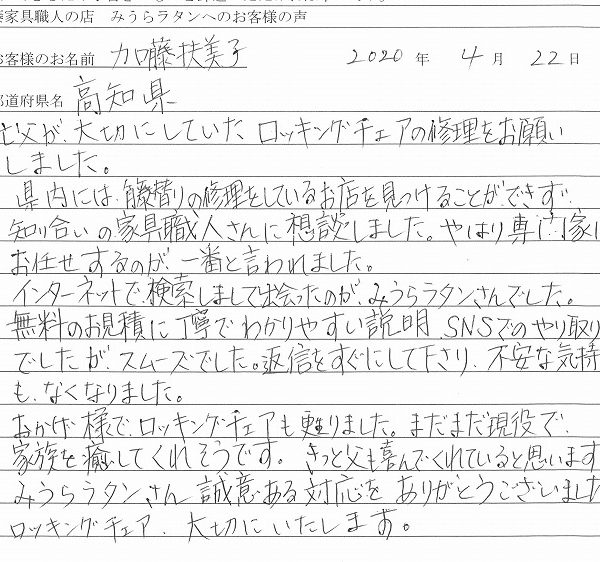 家具職人の店 みうらラタンへのお客様の声
お客様のお名前 加藤扶美子 2020 年 4 月 22 日
都道府県名 高知県
亡父が、大切にしていた ロッキングチェアの修理をお願い
しました。
県内には、籐替りの修理をしているお店を見つけることができず、
知り合いの家具職人さんに想談しました。やはり専門家に
お任せするのが、一番と言われました。
インターネットで、検索しまして出会ったのが、みうらラタンさんでした。
無料のお見積に丁寧でわかりやすい説明、SNSでのやり取り
でしたが、スムーズでした。返信をすぐにして下さり、不安な気持
も、なくなりました。
おかげ様で、ロッキングチェアも甦りました。まだまだ現役で、
家族を癒してくれそうです。きっと父も喜んでくれていると思います
みうらラタンさん 誠意ある対応を ありがとうございました
ロッキングチェア、大切にいたします。